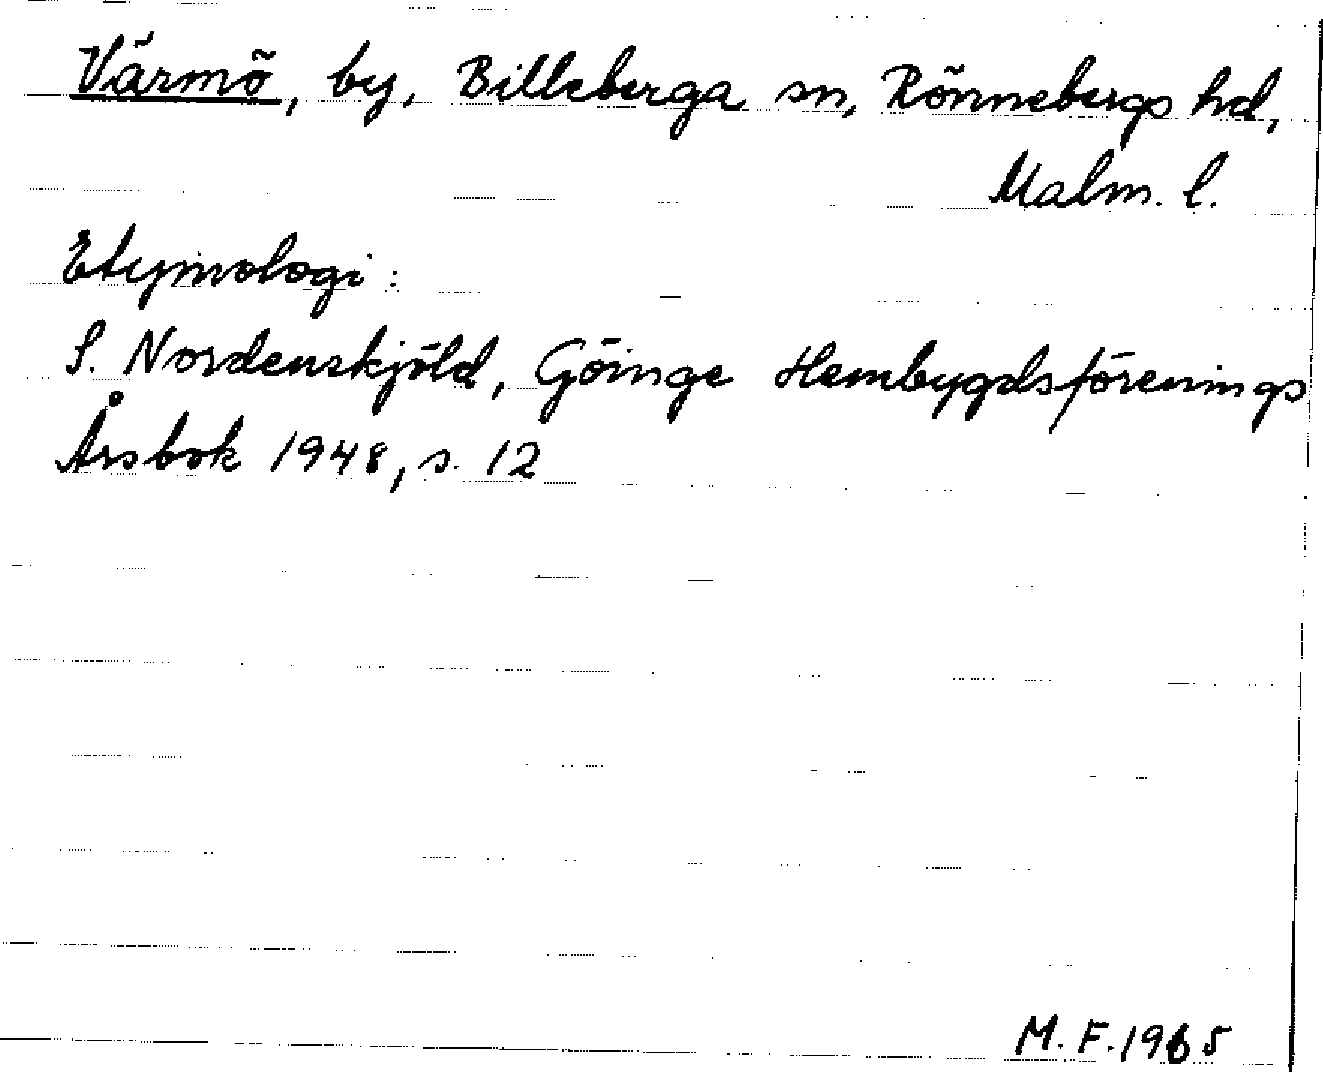 Värmö, by, Billeberga sn, Rönnebergs hd,
Malm. l.
Etymologi:
S. Nordenskjöld, Göinge Hembygdsförenings
Årsbok 1948, s. 12
M. F. 1965